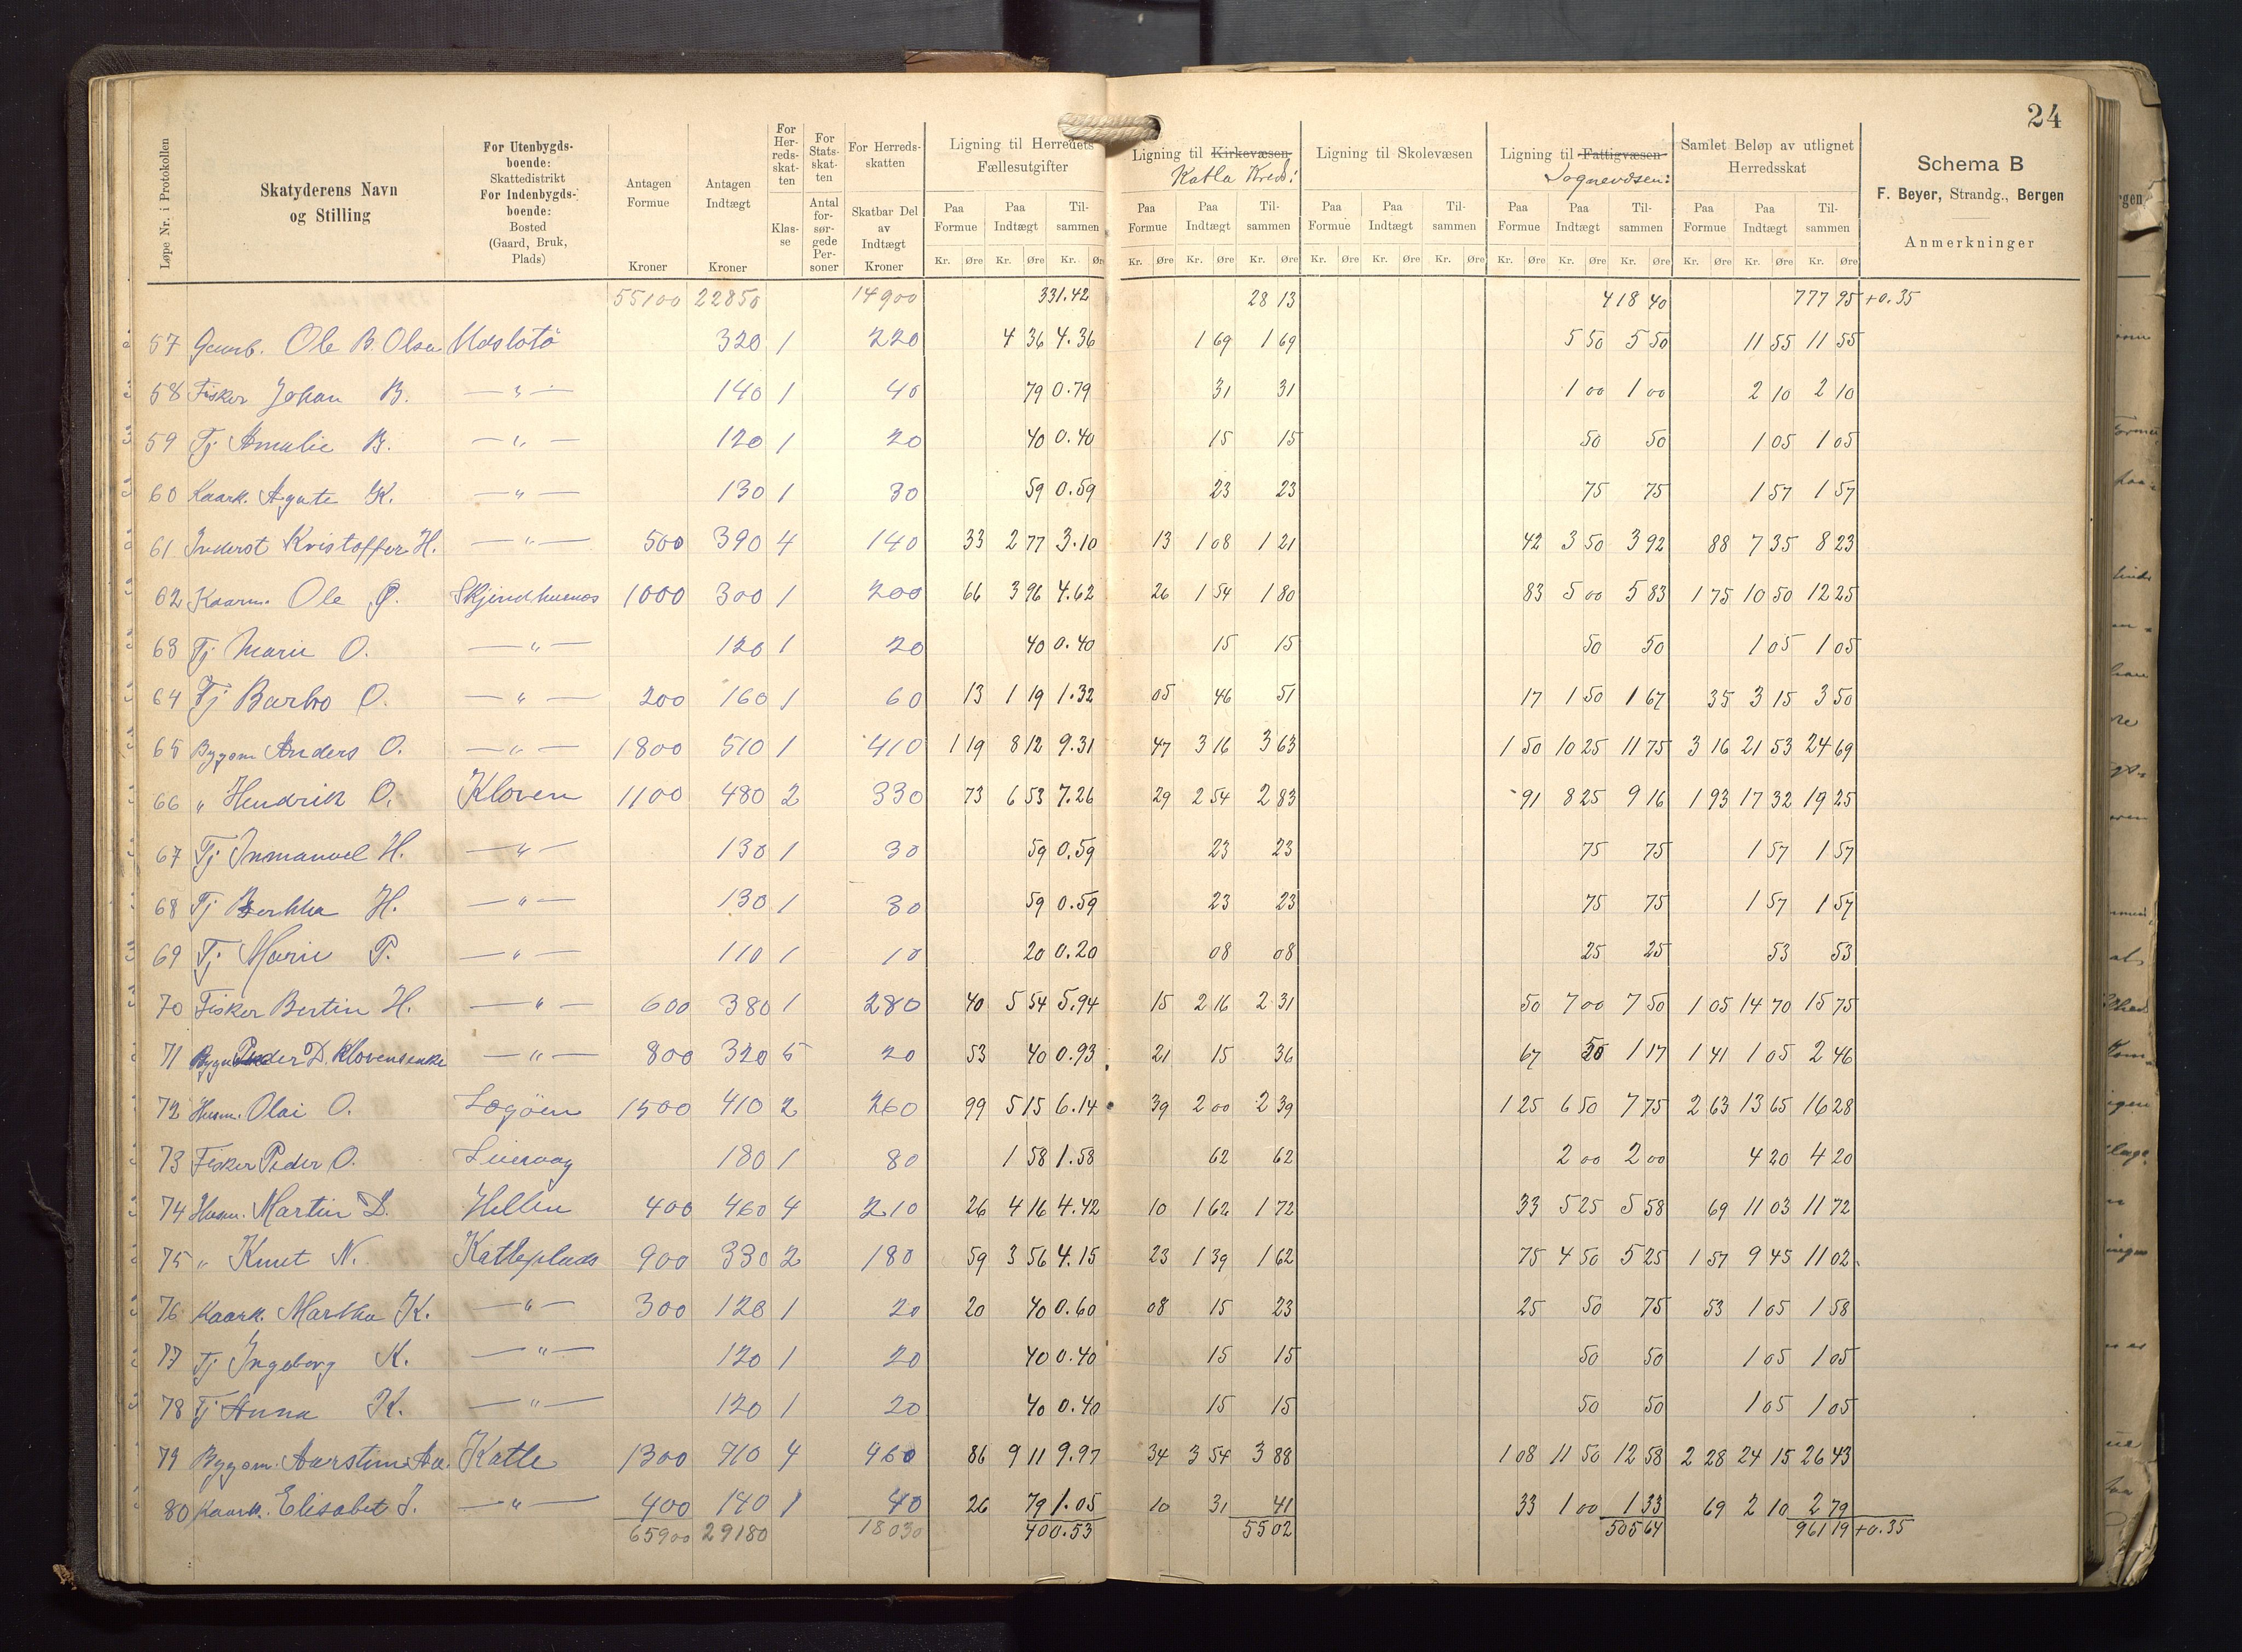 24
Løpe Nr. i Protokollen
Skatyderens Navn og Stilling
For Utenbygdsboende: Skattedistrikt For Indenbygdsboende: Bosted (Gaard, Bruk, Plads)
Antagen Formue Kroner
Antagen Indtægt Kroner
For Herredsskatten Klasse
For Statsskatten Antal forsørgede Personer
For Herredsskatten Skatbar Del av Indtægt Kroner
Ligning til Herredets Fællesutgifter
Ligning til Kirkevæsen Katla Kreds:
Ligning til Skolevæsen
Ligning til Fattigvæsen Sognevæsen:
Samlet Beløp av utlignet Herredsskat
Schema B
F. Beyer, Strandg., Bergen
Anmerkninger
Paa Formue Paa Indtægt Tilsammen Paa Formue Paa Indtægt Tilsammen Paa Formue Paa Indtægt Tilsammen Paa Formue Paa Indtægt Tilsammen Paa Formue Paa Indtægt Tilsammen
Kr. Øre Kr. Øre Kr. Øre Kr. Øre Kr. Øre Kr. Øre Kr. Øre Kr. Øre Kr. Øre Kr. Øre Kr. Øre Kr. Øre Kr. Øre Kr. Øre Kr. Øre
55100 22850 14900 331.42 28 13 418 40 777 95 +0.35
57 Gaardb. Ole B. Olsen 320 1 220 4 36 4.36 1 69 1 69 5 50 5 50 11 55 11 55
58 Fisker Johan B. — " — 140 1 40 79 0.79 31 31 1 00 1 00 2 10 2 10
59 Tj Amalie B. — " — 120 1 20 40 0.40 15 15 50 50 1 05 1 05
60 Kaark. Agate K. — " — 130 1 30 59 0.59 23 23 75 75 1 57 1 57
61 Inderst Kristoffer H. — " — 500 390 4 140 33 2 77 3.10 13 1 08 1 21 42 3 50 3 92 88 7 35 8 23
62 Kaarm. Ole P. Skjendhuenes 1000 300 1 200 66 3 96 4.62 26 1 54 1 80 83 5 00 5 83 1 75 10 50 12 25
63 Tj Marie O. — " — 120 1 20 40 0.40 15 15 50 50 1 05 1 05
64 Tj Barbro O. — " — 200 160 1 60 13 1 19 1.32 05 46 51 17 1 50 1 67 35 3 15 3 50
65 Bygsm Anders O. — " — 1800 510 1 410 1 19 8 12 9.31 47 3 16 3 63 1 50 10 25 11 75 3 16 21 53 24 69
66 " Hendrik O. Kloven 1100 480 2 330 73 6 53 7.26 29 2 54 2 83 91 8 25 9 16 1 93 17 32 19 25
67 Tj Inmanuel H. — " — 130 1 30 59 0.59 23 23 75 75 1 57 1 57
68 Tj Bertha H. — " — 130 1 30 59 0.59 23 23 75 75 1 57 1 57
69 Tj Marie P. — " — 110 1 10 20 0.20 08 08 25 25 53 53
70 Fisker Bertin H. — " — 600 380 1 280 40 5 54 5.94 15 2 16 2 31 50 7 00 7 50 1 05 14 70 15 75
71 Peder D. — " — 800 320 5 20 53 40 0.93 21 15 36 67 50 1 17 1 41 1 05 2 46
72 Husm. Olai O. Logöen 1500 410 2 260 99 5 15 6.14 39 2 00 2 39 1 25 6 50 7 75 2 63 13 65 16 28
73 Fisker Peder O. 180 1 80 1 58 1.58 62 62 2 00 2 00 4 20 4 20
74 Husm. Martin D. Hellen 400 460 4 210 26 4 16 4.42 10 1 62 1 72 33 5 25 5 58 69 11 03 11 72
75 " Knut N. Katleplads 900 330 2 180 59 3 56 4.15 23 1 39 1 62 75 4 50 5 25 1 57 9 45 11 02
76 Kaark. Martha K. — " — 300 120 1 20 20 40 0.60 08 15 23 25 50 75 53 1 05 1 58
77 Tj Ingeborg K. — " — 120 1 20 40 0.40 15 15 50 50 1 05 1 05
78 Tj Anna K. — " — 120 1 20 40 0.40 15 15 50 50 1 05 1 05
79 Bygsm. Aa. Katle 1300 710 4 460 86 9 11 9.97 34 3 54 3 88 1 08 11 50 12 58 2 28 24 15 26 43
80 Kaark. Elisabet J. — " — 400 140 1 40 26 79 1.05 10 31 41 33 1 00 1 33 69 2 10 2 79
65900 29180 18030 400.53 55 02 505 64 961 19 +0.35